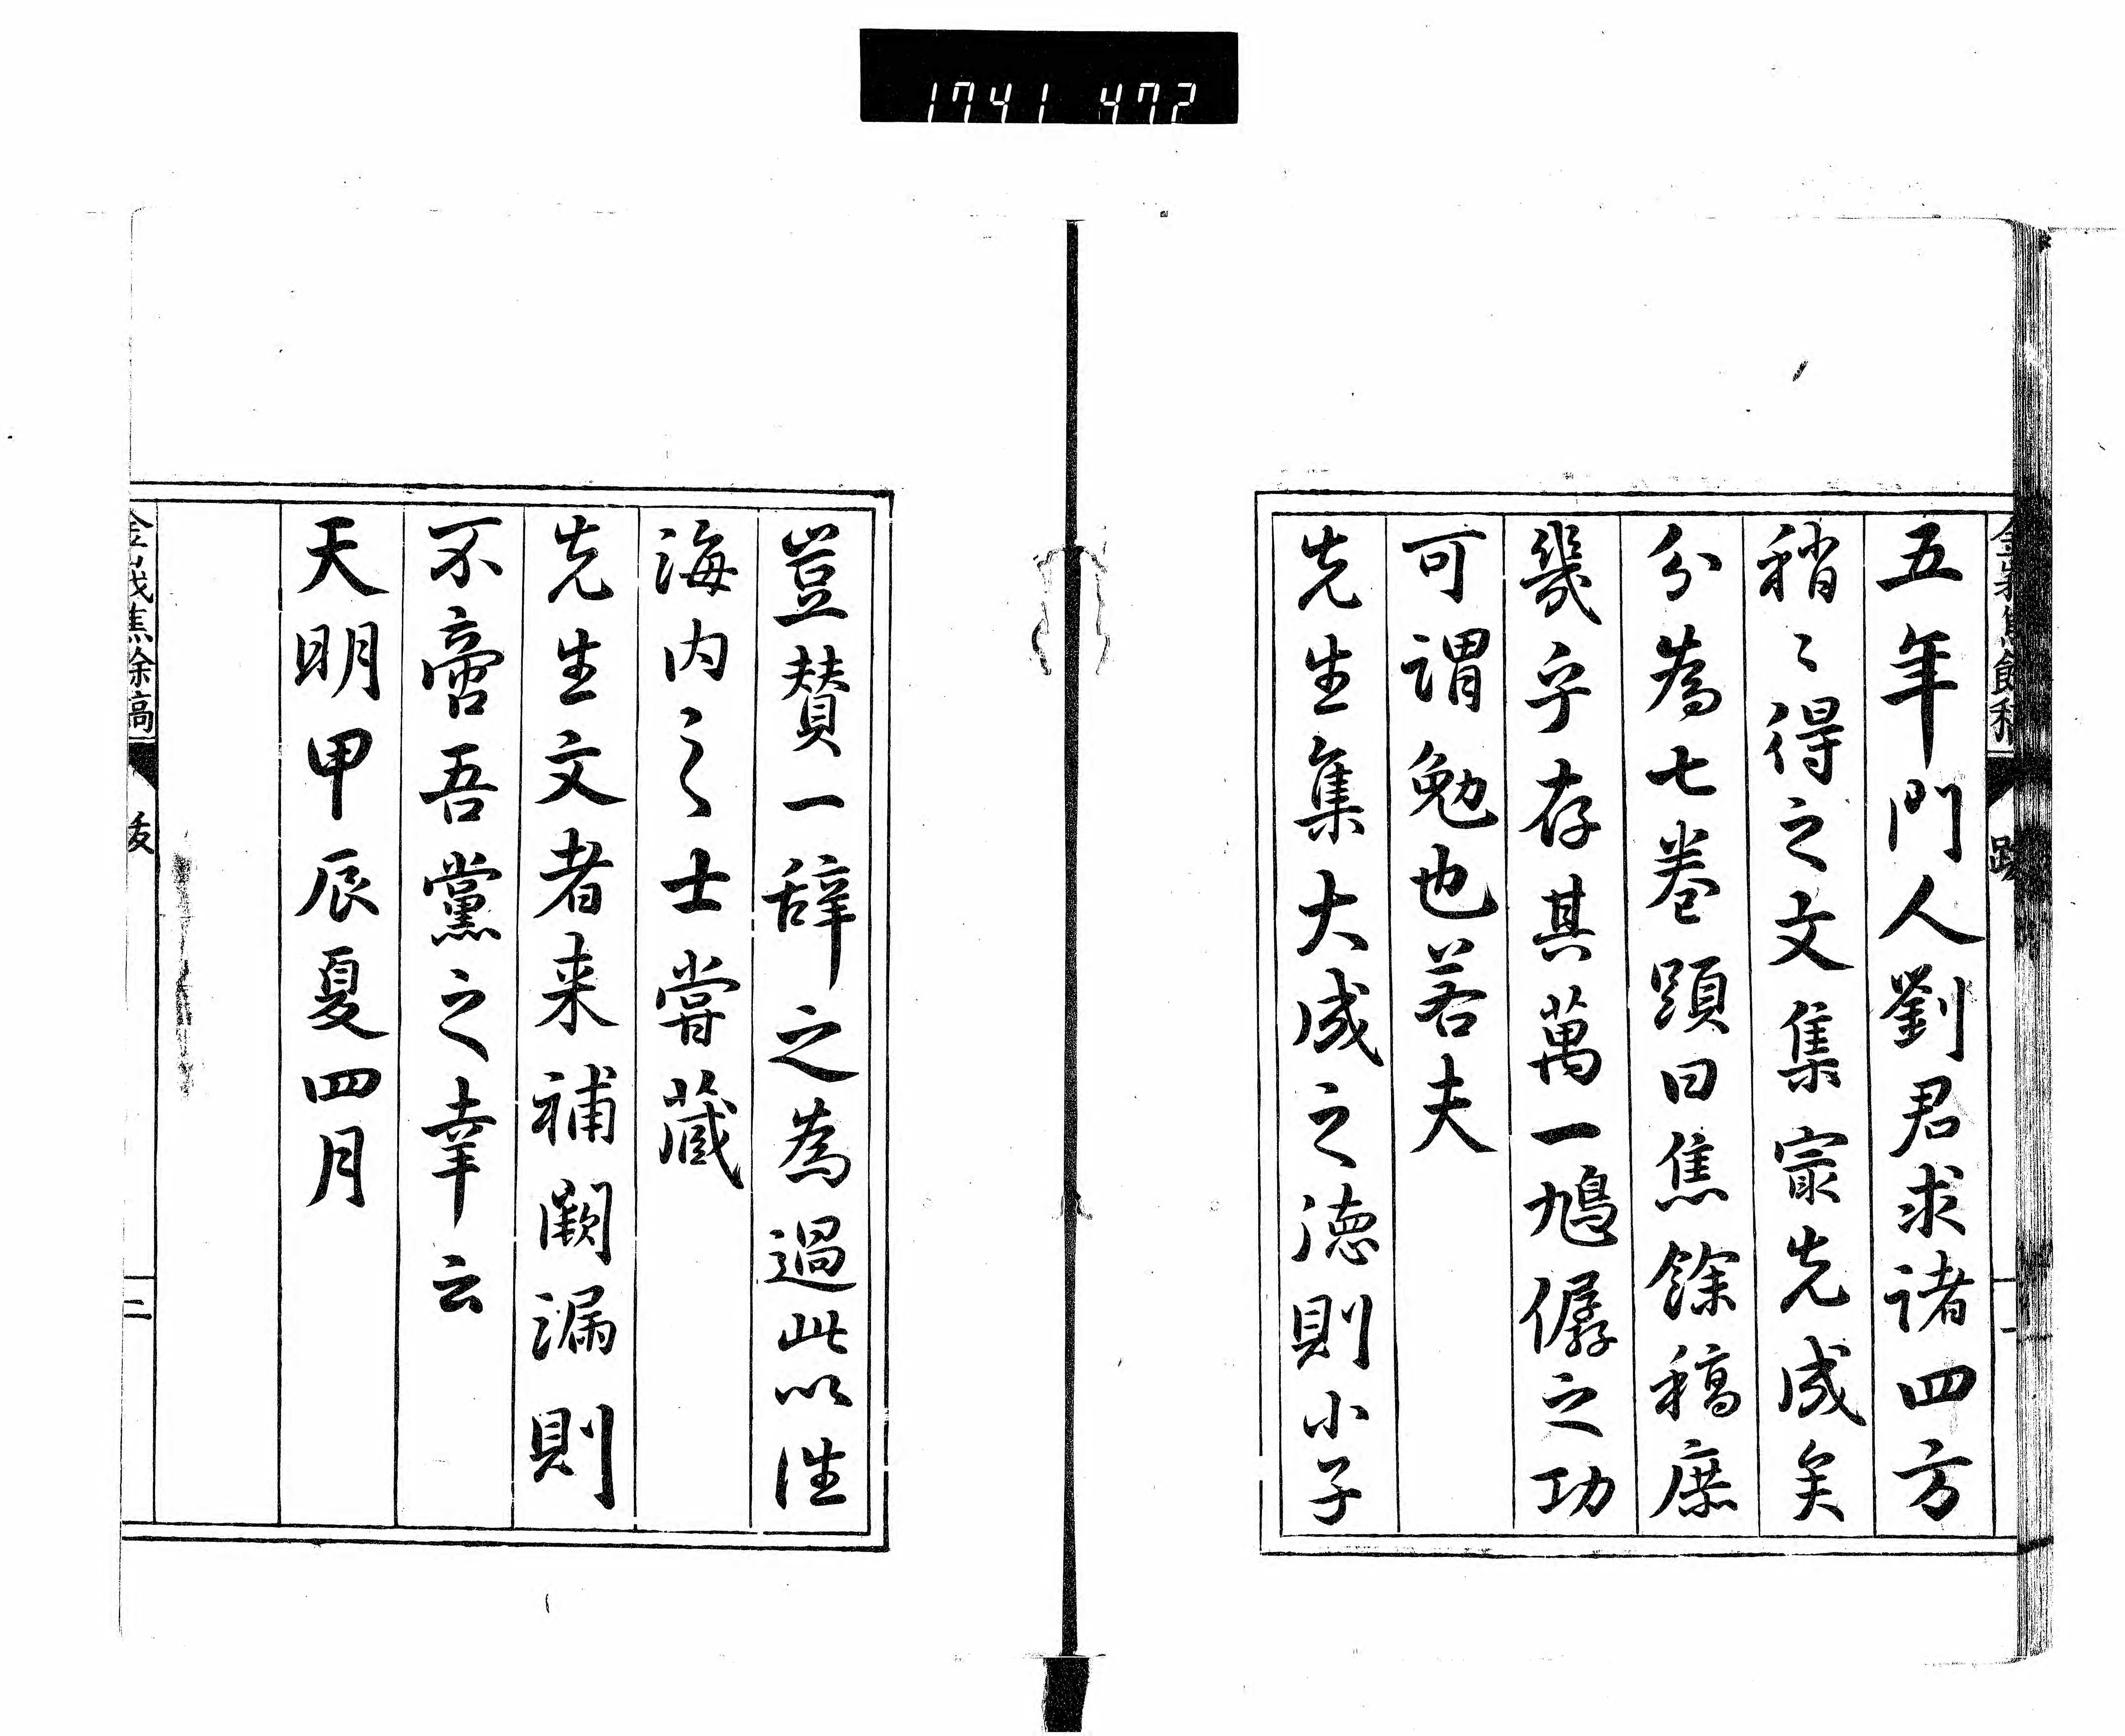 1741 472
五年門人劉君求諸四方
稍〻得之文集寂先成矣
分為七卷題曰焦餘稿庶
幾乎存其萬一鳩僝之功
可謂勉也若夫
先生集大成之德則小子
豈賛一辞之為過此以往
海内之士嘗藏
先生文者来補闕漏則
不啻吾黨之幸云
天明甲辰夏四月
焦餘稿
跋
二